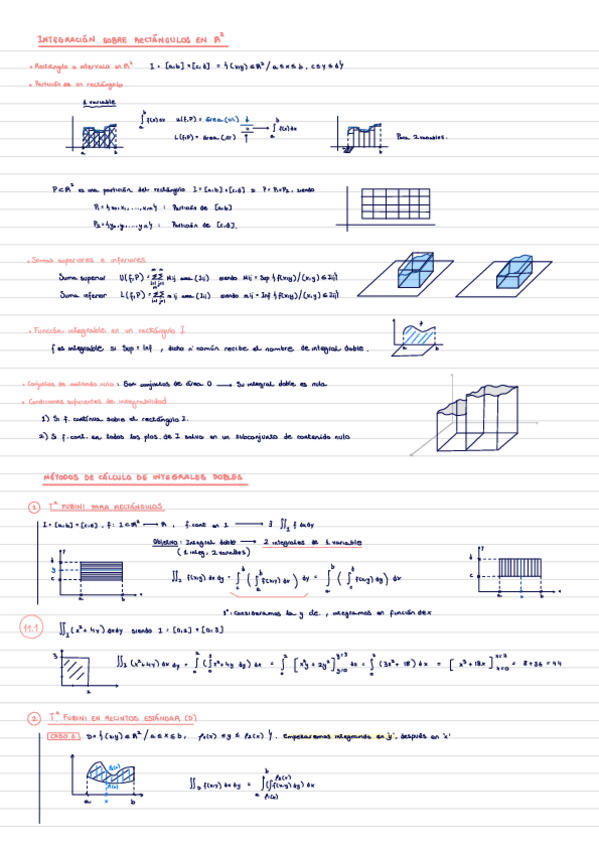 INTEGRACIÓN SOBRE RECTÁNGULOS EN R²
• Rectángulo o intervalo en R² I = [a,b] × [c,d] = {(x,y) ∈ R² / a ≤ x ≤ b, c ≤ y ≤ d}
• Partición de un rectángulo
1 variable
∫ₐᵇ f(x) dx U(f,P) = área ( ) → ∫ₐᵇ f(x) dx
L(f,P) = área ( )
Para 2 variables.
a b a b
P ⊂ R² es una partición del rectángulo I = [a,b] × [c,d] si P = P₁×P₂, siendo
P₁ = {x₀, x₁, ..., xₙ} : Partición de [a,b]
P₂ = {y₀, y₁, ..., yₘ} : Partición de [c,d].
• Sumas superiores e inferiores
Suma superior U(f,P) = Σ Σ Mij área (Iij) siendo Mij = Sup {f(x,y) / (x,y) ∈ Iij}
Suma inferior L(f,P) = Σ Σ mij área (Iij) siendo mij = Inf {f(x,y) / (x,y) ∈ Iij}
• Función integrable en un rectángulo I
f es integrable si Sup = Inf, dicho nº común recibe el nombre de integral doble.
a b
• Conjuntos de contenido nulo : Son conjuntos de área 0 → Su integral doble es nula
• Condiciones suficientes de integrabilidad
1) Si f. continua sobre el rectángulo I.
2) Si f. cont. en todos los ptos. de I salvo en un subconjunto de contenido nulo
MÉTODOS DE CÁLCULO DE INTEGRALES DOBLES
① Tª FUBINI PARA RECTÁNGULOS
I = [a,b] × [c,d], f: I ⊂ R² → R, f. cont en I → ∃ ∬I f dxdy
Objetivo : Integral doble → 2 integrales de 1 variable
(1 integ, 2 variables)
∬I f(x,y) dx dy = ∫ (∫ₐᵇ f(x,y) dx) dy = ∫ₐᵇ (∫ f(x,y) dy) dx
y d y c a b x
y d c a b x
1º: Consideramos la y cte., integramos en función de x
11.1 ∬I (x²+4y) dxdy siendo I = [0,2] × [0,3]
3 2
∬I (x²+4y) dx dy = ∫₀² (∫₀³ x²+4y dy) dx = ∫₀² [x²y + 2y²]ʸ⁼³ᵧ₌₀ dx = ∫₀² (3x² + 18) dx = [x³ + 18x]ˣ⁼²ₓ₌₀ = 8+36 = 44
② Tª FUBINI EN RECINTOS ESTÁNDAR (D)
CASO 1 D = {(x,y) ∈ R² / a ≤ x ≤ b, φ₁(x) ≤ y ≤ φ₂(x)}. Empezaremos integrando en 'y', después en 'x'
φ₂(x)
φ₁(x)
a x b
∬D f(x,y) dx dy = ∫ₐᵇ (∫ f(x,y) dy) dx